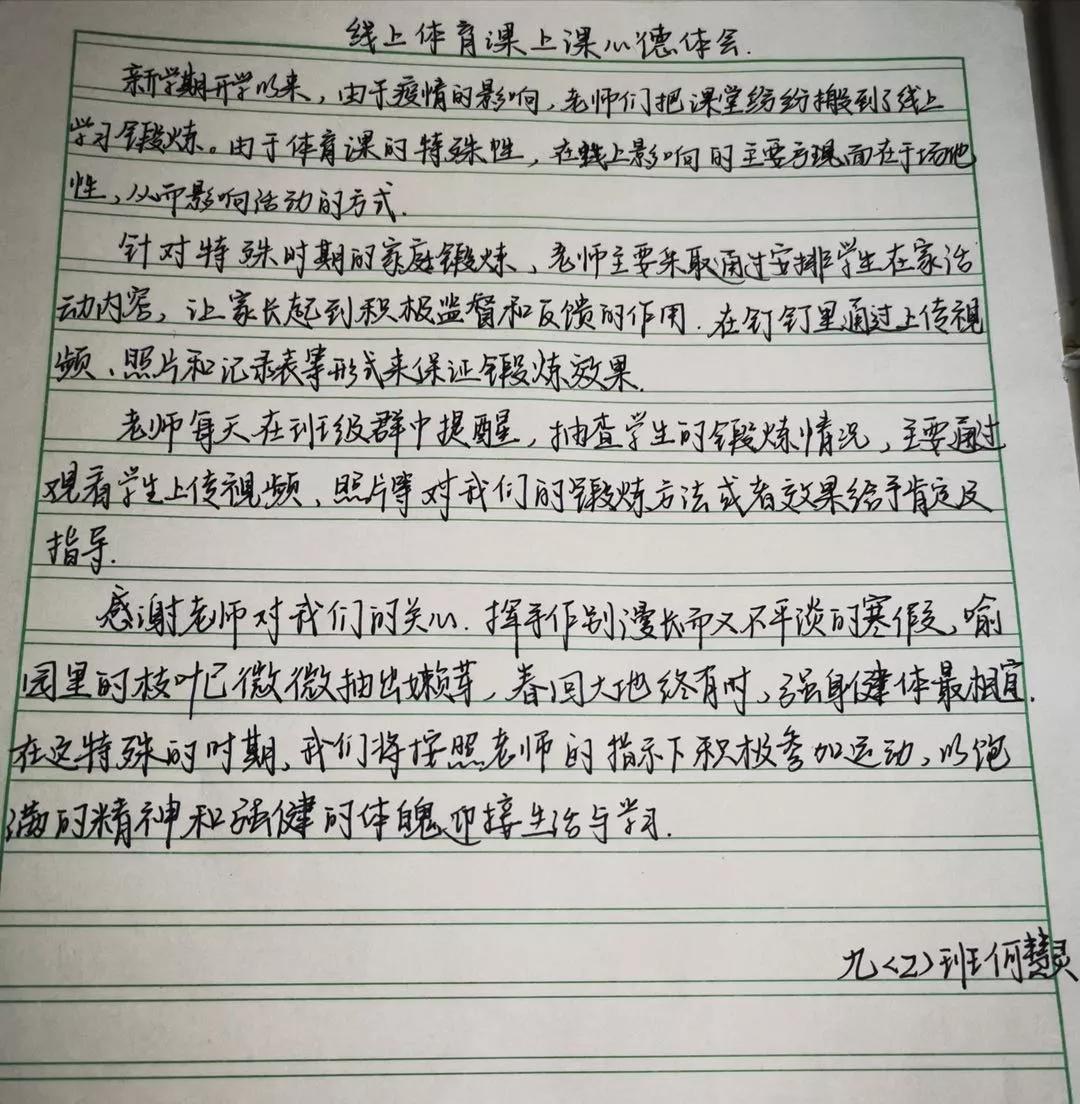 线上体育课上课心德体会.
新学期开学以来，由于疫情的影响，老师们把课堂纷纷搬到了线上
学习锻炼。由于体育课的特殊性，在线上影响的主要方现面在于场地
性，从而影响活动的方式.
针对特殊时期的家庭锻炼，老师主要采取通过安排学生在家活
动内容，让家长起到积极监督和反馈的作用.在钉钉里通过上传视
频、照片和记录表等形式来保证锻炼效果.
老师每天在班级群中提醒，抽查学生的锻炼情况，主要通过
观看学生上传视频、照片等对我们的锻炼方法或者效果给予肯定及
指导.
感谢老师对我们的关心.挥手作别漫长而又不平淡的寒假，喻
园里的枝叶已微微抽出嫩芽，春回大地终有时，强身健体最相宜.
在这特殊的时期，我们将按照老师的指示下积极参加运动，以饱
满的精神和强健的体魄迎接生活与学习.
九<2>班何慧灵